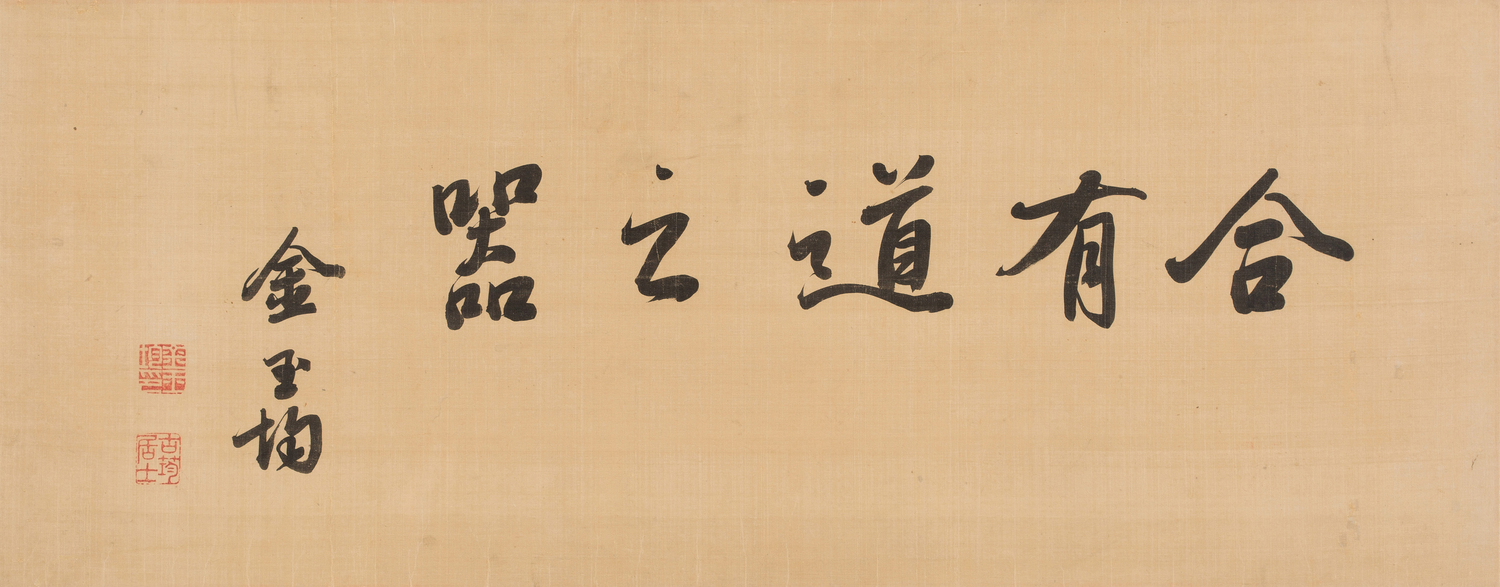 合有道之器
金玉均
古筠居士